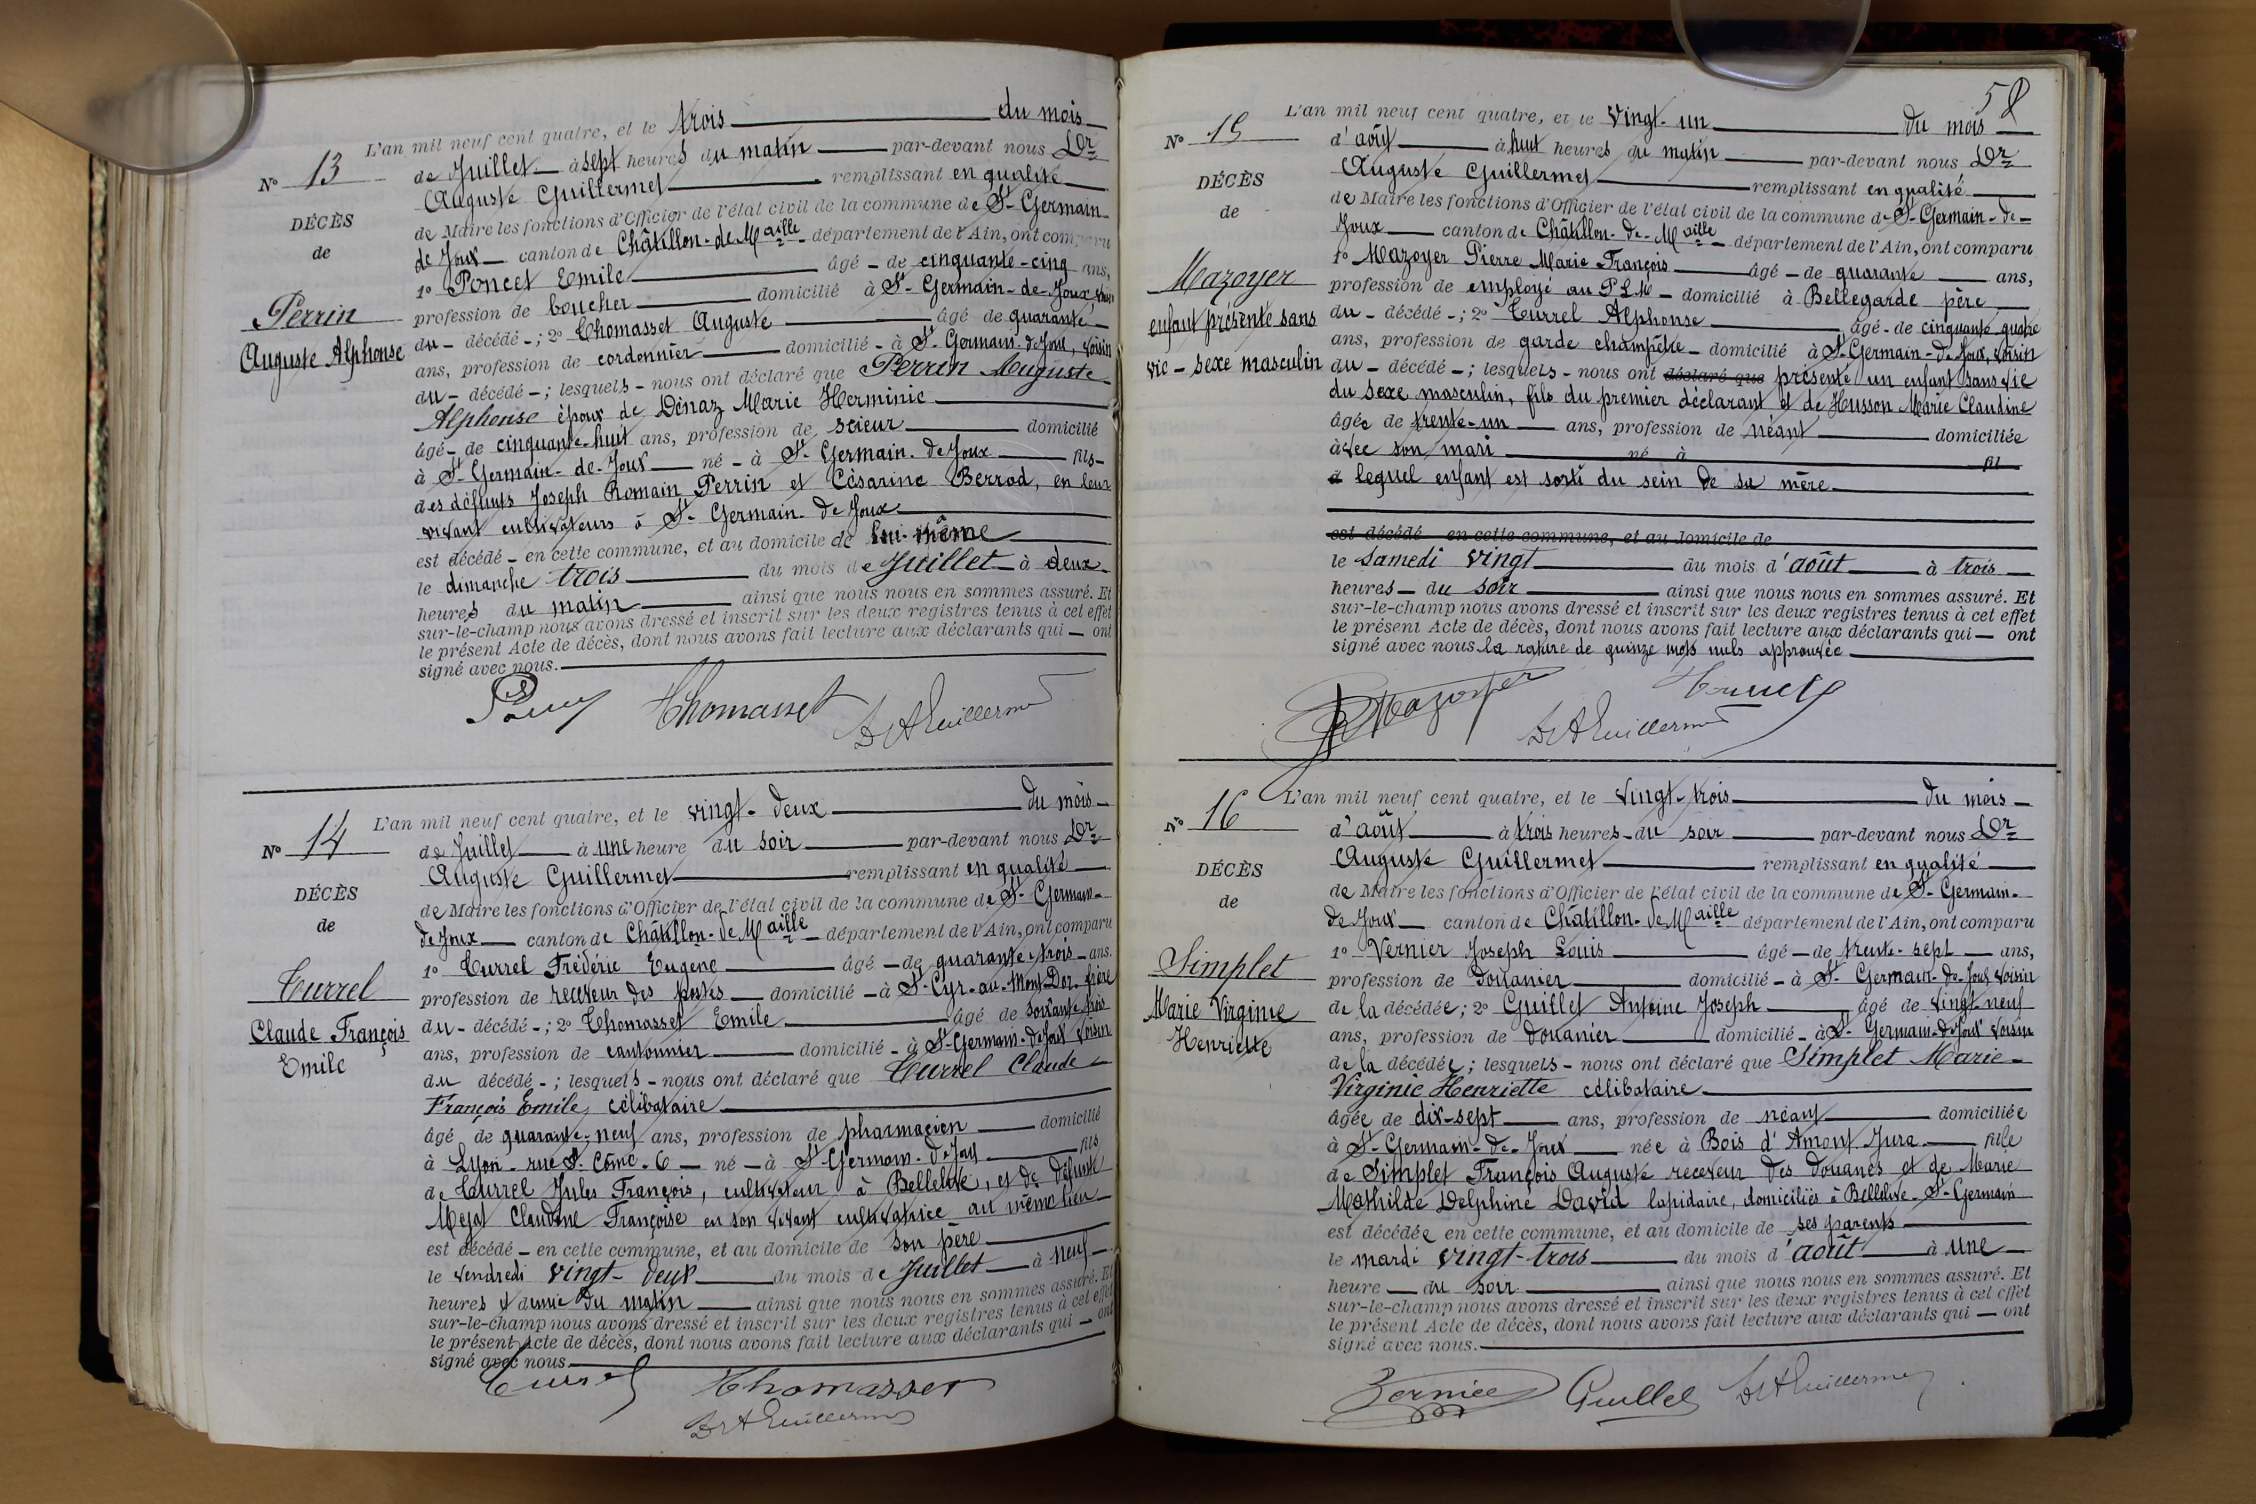 L'an mil neuf cent quatre, et le trois du mois
N° 13
de Juillet à sept heures du matin par-devant nous Dr
Auguste Guillermet remplissant en qualité
DÉCÈS
de Maire les fonctions d'Officier de l'état civil de la commune de St Germain
de
de Joux canton de Châtillon-de-Maille département de l'Ain, ont comparu
1° Poncet Emile âgé de cinquante-cinq ans,
Perrin
profession de boucher domicilié à St Germain-de-Joux, voisin
Auguste Alphonse
du décédé; 2° Thomasset Auguste âgé de quarante
ans, profession de cordonnier domicilié à St Germain-de-Joux, voisin
du décédé; lesquels nous ont déclaré que Perrin Auguste
Alphonse époux de Dénaz Marie Herminie
âgé de cinquante-huit ans, profession de scieur domicilié
à St Germain-de-Joux né à St Germain-de-Joux fils
des défunts Joseph Romain Perrin et Césarine Berrod, en leur
vivant cultivateurs à St Germain-de-Joux
est décédé en cette commune, et au domicile de lui-même
le dimanche trois du mois de Juillet à deux
heures du matin ainsi que nous nous en sommes assuré. Et
sur-le-champ nous avons dressé et inscrit sur les deux registres tenus à cet effet
le présent Acte de décès, dont nous avons fait lecture aux déclarants qui ont
signé avec nous.
Thomasset Dr A Guillermet
L'an mil neuf cent quatre, et le vingt-deux du mois
N° 14
de Juillet à une heure du soir par-devant nous Dr
Auguste Guillermet remplissant en qualité
DÉCÈS
de Maire les fonctions d'Officier de l'état civil de la commune de St Germain-
de
de Joux canton de Châtillon-de Maille département de l'Ain, ont comparu
1° Turrel Frédéric Eugène âgé de quarante-trois ans.
Turrel
profession de receveur des postes domicilié à St Cyr-au-Mont Dor frère
Claude François
Emile
du décédé; 2° Thomasset Emile âgé de soixante trois
ans, profession de cantonnier domicilié à St Germain-de Joux voisin
du décédé; lesquels nous ont déclaré que Turrel Claude
François Emile, célibataire
âgé de quarante-neuf ans, profession de pharmacien domicilié
à Lyon rue St Côme 6 né à St Germain-de Joux fils
de Turrel Jules François, cultivateur à Belleydoux, et de défunte
Claudine Françoise en son vivant cultivatrice au même lieu
est décédé en cette commune, et au domicile de son père
le vendredi vingt-deux du mois de Juillet à neuf
heures & demie du matin ainsi que nous nous en sommes assuré. Et
sur-le-champ nous avons dressé et inscrit sur les deux registres tenus à cet effet
le présent Acte de décès, dont nous avons fait lecture aux déclarants qui ont
signé avec nous.
Turrel Thomasset
Dr A Guillermet
58
L'an mil neuf cent quatre, et le vingt-un du mois
N° 15
d'août à huit heures du matin par-devant nous Dr
DÉCÈS
Auguste Guillermet remplissant en qualité
de
de Maire les fonctions d'Officier de l'état civil de la commune de St Germain-de-
Joux canton de Châtillon-de-Maille département de l'Ain, ont comparu
Mazoyer
1° Mazoyer Pierre Marie François âgé de quarante ans,
profession de employé au P L M domicilié à Bellegarde père
enfant présenté sans
du décédé; 2° Turrel Alphonse âgé de cinquante quatre
vie - sexe masculin
ans, profession de garde champêtre domicilié à St Germain-de Joux, voisin
du décédé; lesquels nous ont déclaré que présenté un enfant sans vie
du sexe masculin, fils du premier déclarant et de Husson Marie Claudine
âgée de trente-un ans, profession de néant domiciliée
avec son mari né à fil
lequel enfant est sorti du sein de sa mère
est décédé en cette commune, et au domicile de
le samedi vingt du mois d'août à trois
heures du soir ainsi que nous nous en sommes assuré. Et
sur-le-champ nous avons dressé et inscrit sur les deux registres tenus à cet effet
le présent Acte de décès, dont nous avons fait lecture aux déclarants qui ont
signé avec nous la rature de quinze mots nuls approuvée
Mazoyer Dr A Guillermet
L'an mil neuf cent quatre, et le vingt-trois du mois
N° 16
d'août à trois heures du soir par-devant nous Dr
DÉCÈS
Auguste Guillermet remplissant en qualité
de
de Maire les fonctions d'Officier de l'état civil de la commune de St Germain-
de Joux canton de Châtillon-de Maille département de l'Ain, ont comparu
1° Vernier Joseph Louis âgé de trente-sept ans,
Simplet
profession de douanier domicilié à St Germain-de-Joux voisin
Marie Virginie
de la décédée; 2° Guillet Antoine Joseph âgé de vingt-neuf
Henriette
ans, profession de douanier domicilié à St Germain-de Joux voisin
de la décédée; lesquels nous ont déclaré que Simplet Marie
Virginie Henriette célibataire
âgée de dix-sept ans, profession de néant domiciliée
à St Germain-de-Joux née à Bois d'Amont Jura fille
de Simplet François Auguste receveur des douanes et de Marie
Mathilde Delphine David lapidaire, domiciliés à St Germain
est décédée en cette commune, et au domicile de ses parents
le mardi vingt-trois du mois d'août à une
heure du soir ainsi que nous nous en sommes assuré. Et
sur-le-champ nous avons dressé et inscrit sur les deux registres tenus à cet effet
le présent Acte de décès, dont nous avons fait lecture aux déclarants qui ont
signé avec nous.
Vernier Guillet Dr A Guillermet